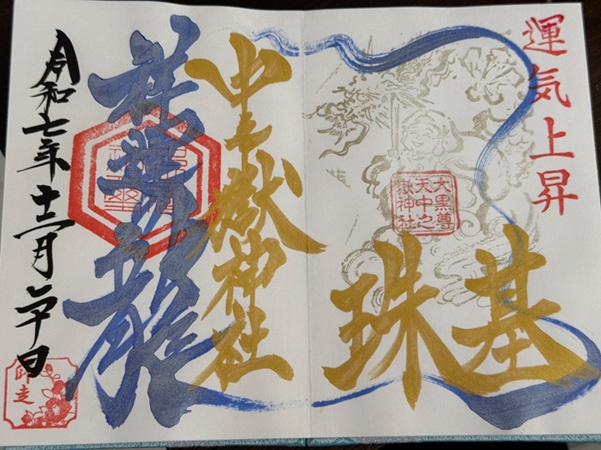 運気上昇
大黒尊
天中之
嶽神社
基珠
中之嶽神社
祥
龍
令和七年十二月二十日
師走